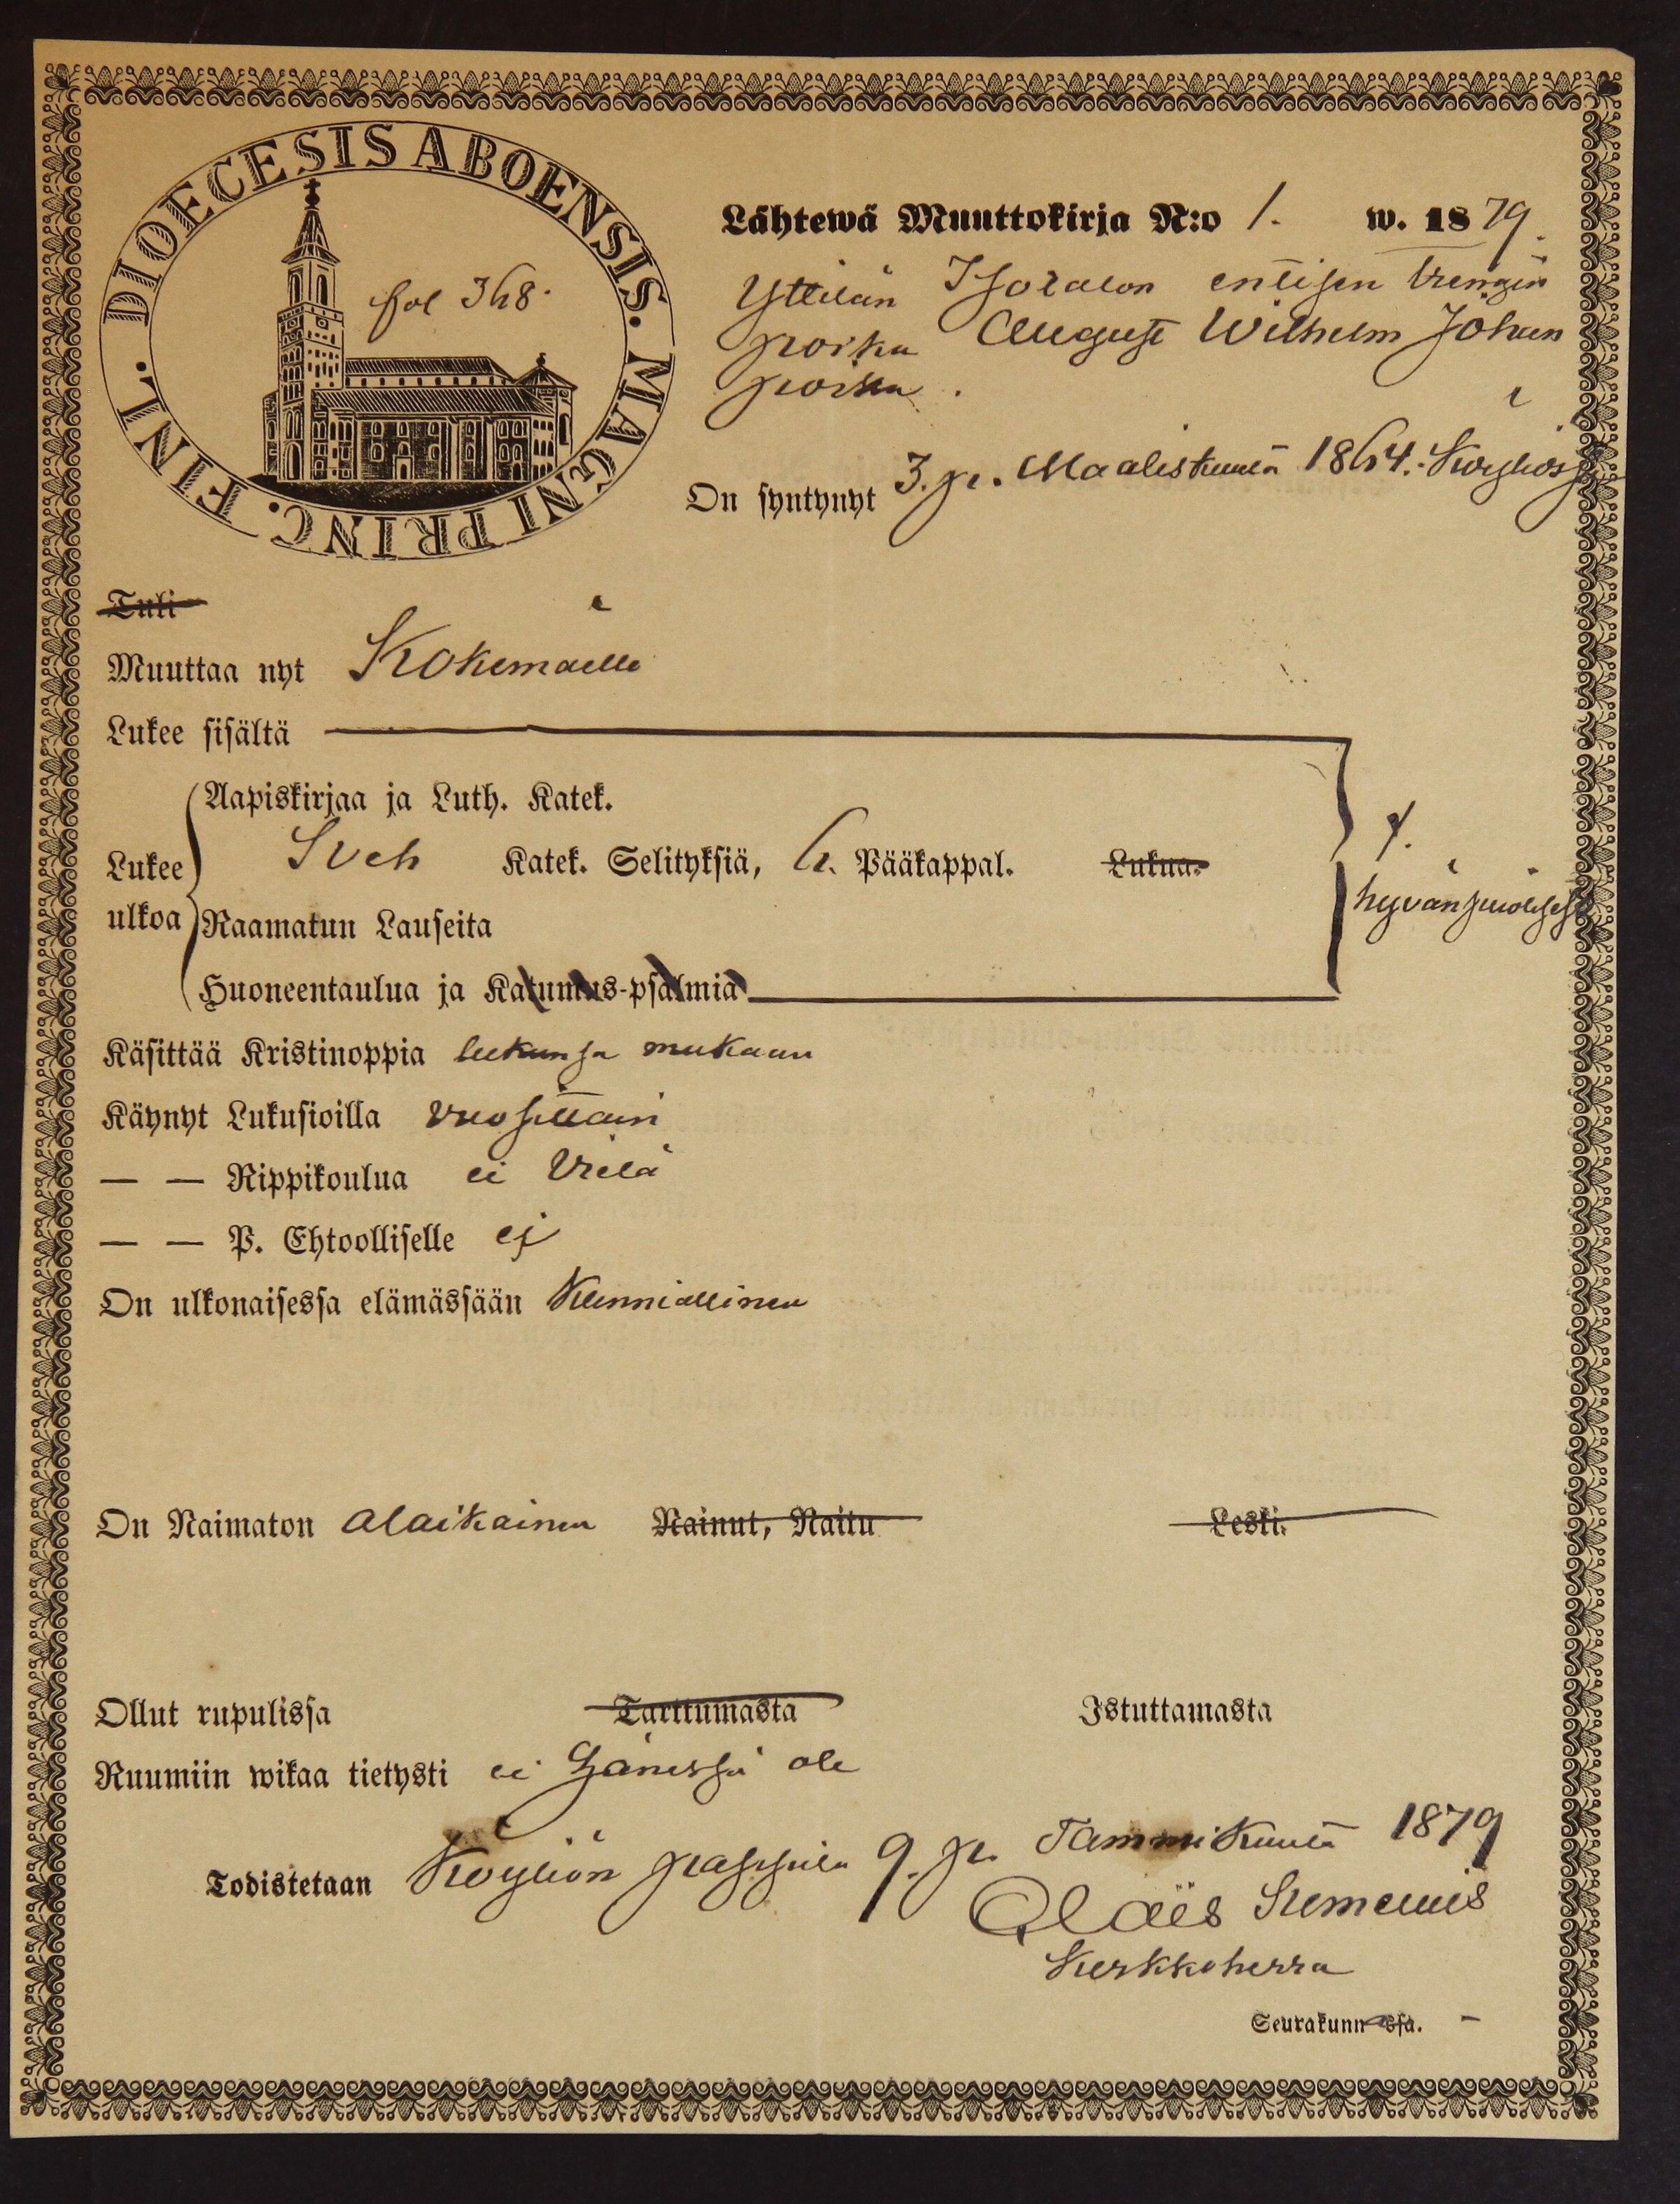 DIOECESIS ABOENSIS. MAGNI PRINC. FINL.
fol 368.
Lähtewä Muuttokirja N:o 1. w. 1879.
Yttilän Isotalon entisen trengin
poika August Wilhelm Johan
poika.
On syntynyt 3. p. Maaliskuuta 1864. Köyliössä
Tuli
Muuttaa nyt Kokemäelle
Lukee sisältä
Aapiskirjaa ja Luth. Katek.
Lukee ulkoa Sveb Katek. Selityksiä, 6. Pääkappal. Lukua.
hyvänpuolisesti
Raamatun Lauseita
Huoneentaulua ja Katumus-psalmia
Käsittää Kristinoppia lukunsa mukaan
Käynyt Lukusioilla vuosittain
— — Rippikoulua ei vielä
— — P. Ehtoolliselle ej
On ulkonaisessa elämässään Kunniallinen
On Naimaton alaikäinen Nainut, Naitu Leski.
Ollut rupulissa Tarttumasta Istuttamasta
Ruumiin wikaa tietysti ei hänessä ole
Todistetaan Köyliön pappila 9. p. Tammikuuta 1879
Kirkkoherra
Seurakunnassa.